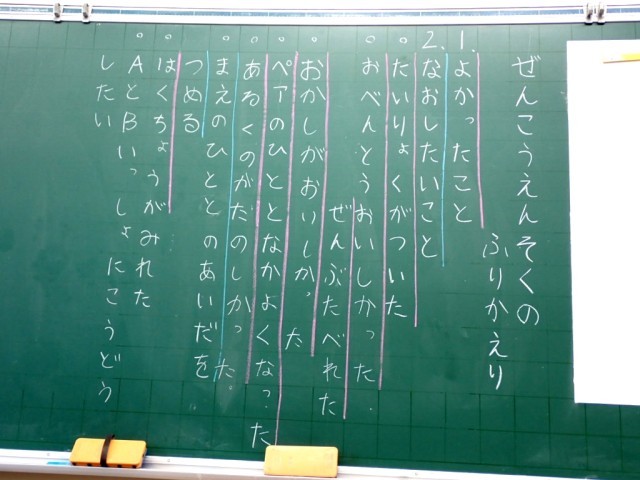 ぜんこうえんそくの
ふりかえり
1.よかったこと
2.なおしたいこと
。たいりょくがついた
。おべんとうおいしかった
ぜんぶたべれた
。おかしがおいしかった
。ペアのひととなかよくなった
。あるくのがたのしかった
。まえのひととのあいだを
つめる
。はくちょうがみれた
。AとBいっしょにこうどう
したい